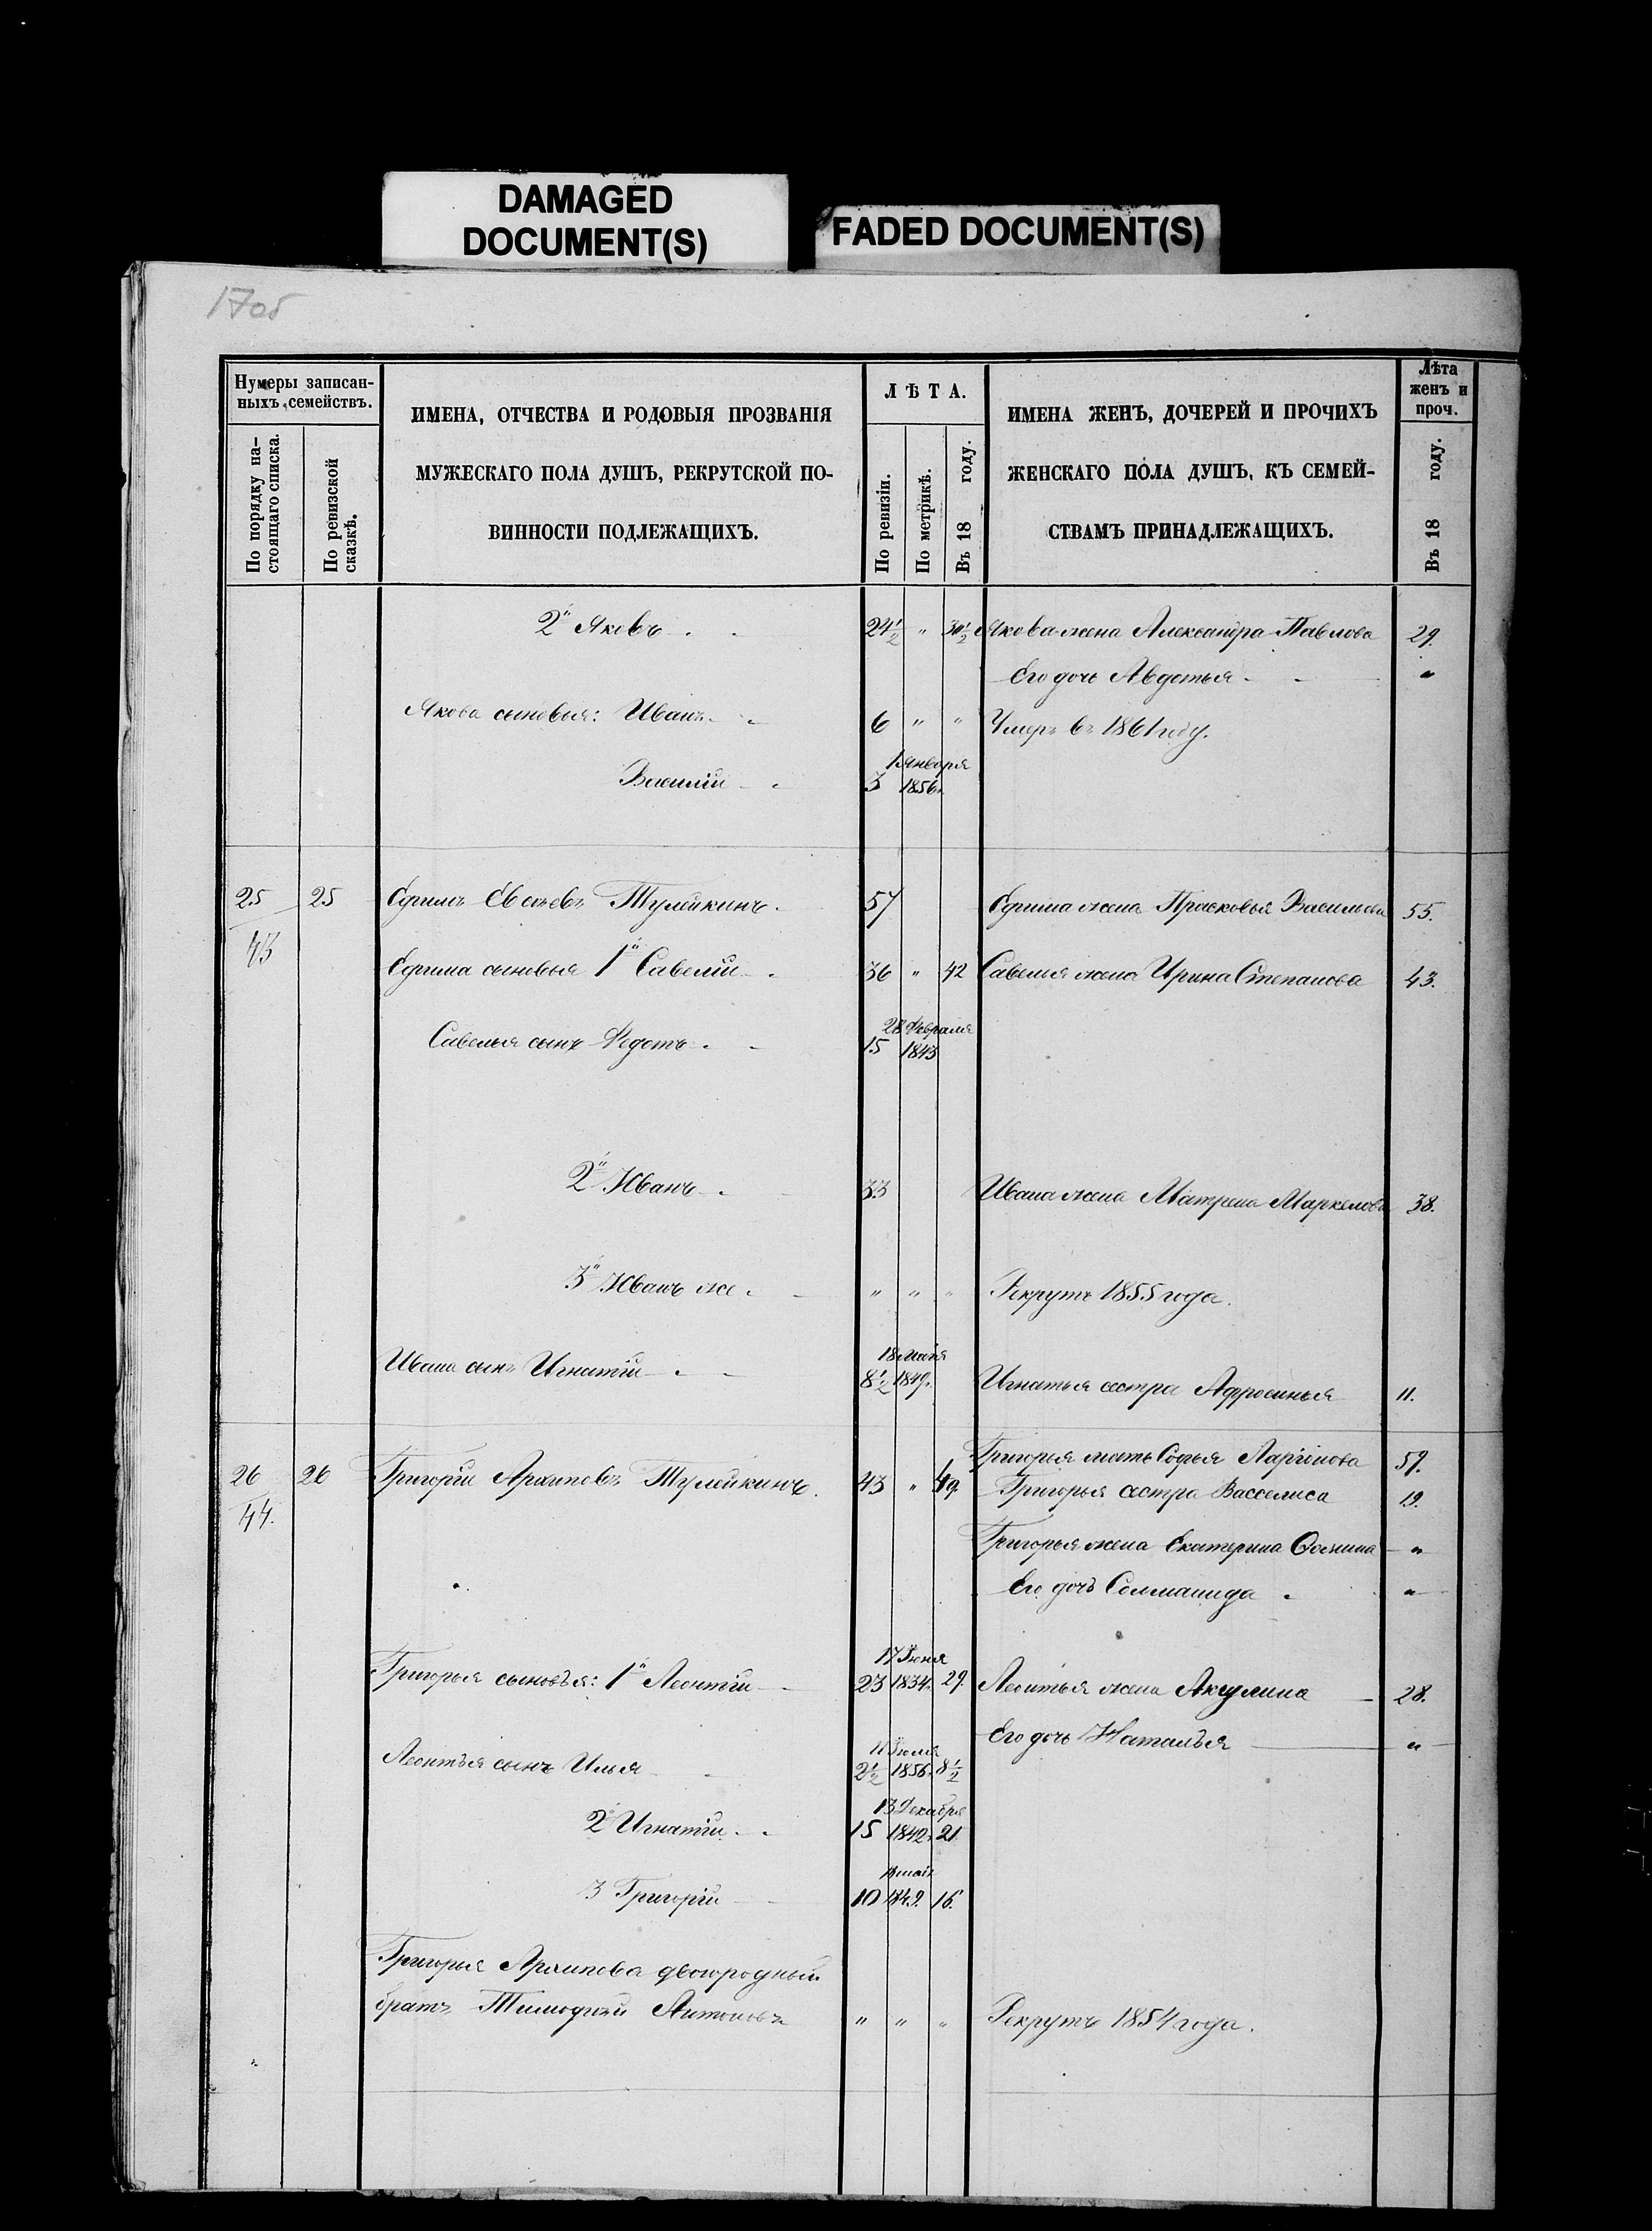 DAMAGED
DOCUMENT(S)
FADED DOCUMENT(S)
17об
Нумеры записан-
ныхъ семействъ.
По порядку на-
стоящаго списка.
По ревизской
сказкѣ.
ИМЕНА, ОТЧЕСТВА И РОДОВЫЯ ПРОЗВАНІЯ
МУЖЕСКАГО ПОЛА ДУШЪ, РЕКРУТСКОЙ ПО-
ВИННОСТИ ПОДЛЕЖАЩИХЪ.
ЛѢТА.
По ревизіи.
По метрикѣ.
Въ 18 году.
ИМЕНА ЖЕНЪ, ДОЧЕРЕЙ И ПРОЧИХЪ
ЖЕНСКАГО ПОЛА ДУШЪ, КЪ СЕМЕЙ-
СТВАМЪ ПРИНАДЛЕЖАЩИХЪ.
Лѣта
женъ и
проч.
Въ 18 году.
2й Яковъ 24½ " 30½ Якова жена Александра Павлова 29.
Его дочь Авдотья "
Якова сыновья: Иванъ 6 " " Умеръ въ 1861 году.
1 Января
Василій 3 1856.
25 25 Ефимъ Евсѣевъ Тулейкинъ. 57 Ефима жена Прасковья Васильева 55.
43
Ефима сыновья 1й Савелій 36 " 42 Савелья жена Ирина Степанова 43.
28 Февраля
Савелья сынъ Федотъ 15 1843
2й Иванъ 33 Ивана жена Матрена Маркелова 38.
3й Иванъ же " " " Рекрутъ 1855 года.
18 Мая
Ивана сынъ Игнатій 8½ 1849. Игнатья сестра Афросинья 11.
Григорья мать Софья Ларіонова 59.
26 26 Григорій Архиповъ Тулейкинъ. 43 " 49. Григорья сестра Васселиса 19.
44.
Григорья жена Екатерина "
Его дочь Соломанида "
17 Іюня
Григорья сыновья: 1й Леонтій 23 1834. 29. Леонтья жена Акулина 28.
Его дочь Наталья "
11 Іюля
Леонтья сынъ Илья 2½ 1856. 8½
13 Декабря
2й Игнатій 15 1842. 21.
мая
3 Григорій 10 1849. 16.
Григорья Архипова двоюродный
братъ Тимофей Антоновъ " " " Рекрутъ 1854 года.